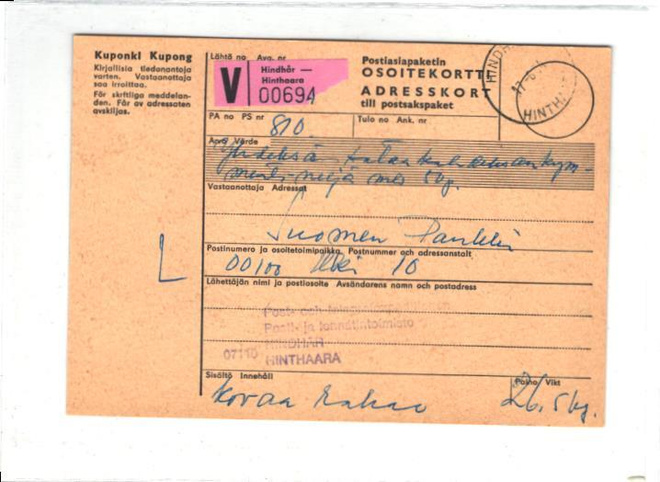 Kuponki Kupong
Kirjallisia tiedonantoja
varten. Vastaanottaja
saa irroittaa.
För skriftliga meddelan-
den. Får av adressaten
avskiljas.
Lähtö no Avg. nr
V
Hindhår —
Hinthaara
00694
Postiasiapaketin
OSOITEKORTTI
ADRESSKORT
till postsakspaket
HINTHA
PA no PS nr
810
Tulo no Ank. nr
Arvo Värde
Vastaanottaja Adressat
Suomen Pankki
Postinumero ja osoitetoimipaikka Postnummer och adressanstalt
00100 Hki 10
Lähettäjän nimi ja postiosoite Avsändarens namn och postadress
Posti- ja lennätintoimisto
HINDHÅR
07110 HINTHAARA
Sisältö Innehåll
Kovaa rahaa
Paino Vikt
26.5 kg.